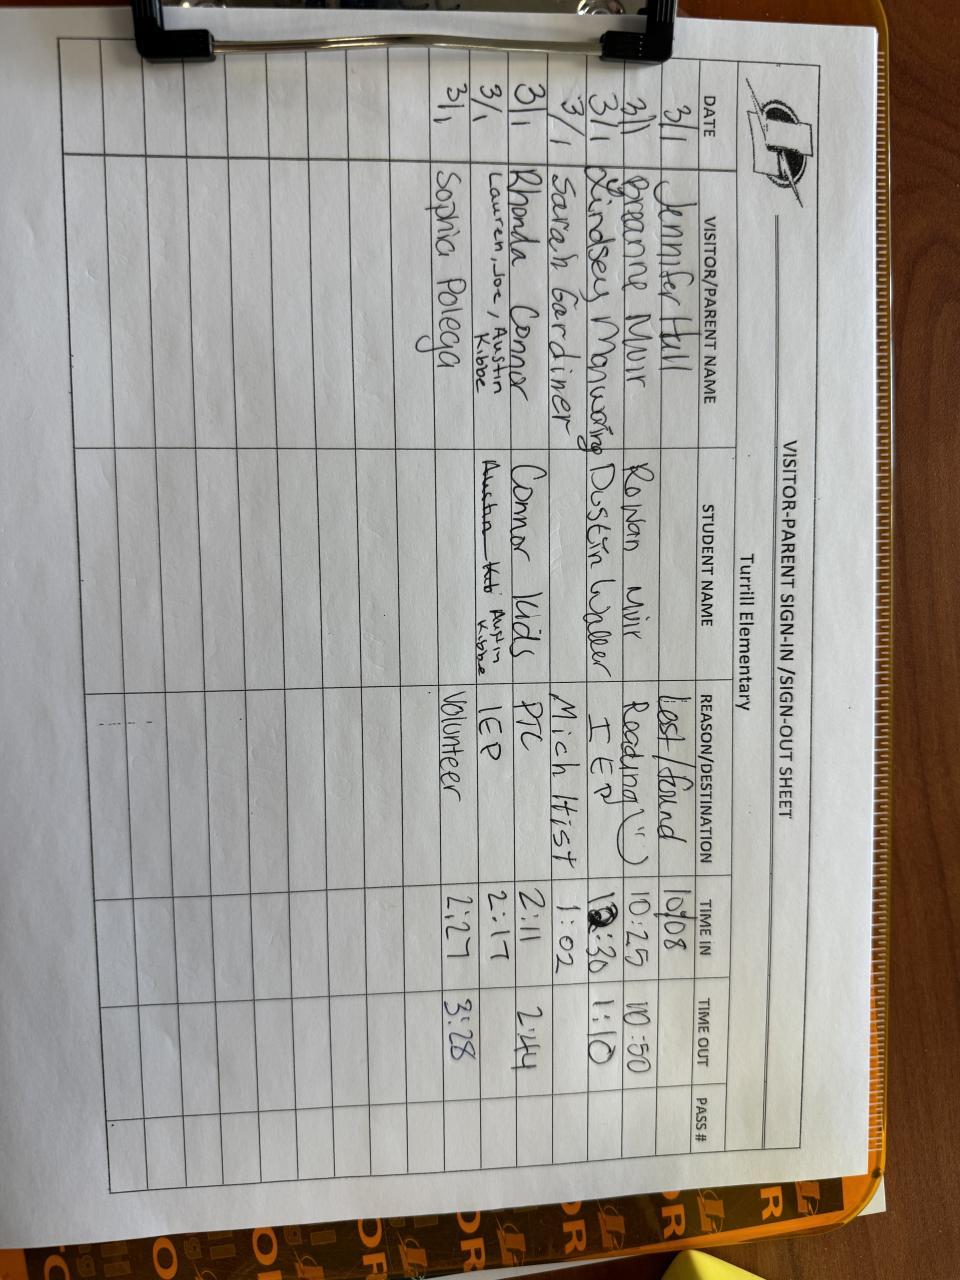 VISITOR-PARENT SIGN-IN /SIGN-OUT SHEET
Turrill Elementary
DATE VISITOR/PARENT NAME STUDENT NAME REASON/DESTINATION TIME IN TIME OUT PASS #
3/1 Jennifer Hall Lost/found 10:08
3/1 Breanne Muir Rowan Muir Reading 10:25 10:50
3/1 Lindsey Manwaring Dustin Waller IEP 12:30 1:10
3/1 Sarah Gardiner Mich Hist 1:02
3/1 Rhonda Connor Connor Kids PTC 2:11 2:44
3/1 Lauren, Joe, Austin Kibbe Austin Kib Austin Kibbe IEP 2:17
3/1 Sophia Polega Volunteer 2:27 3:28